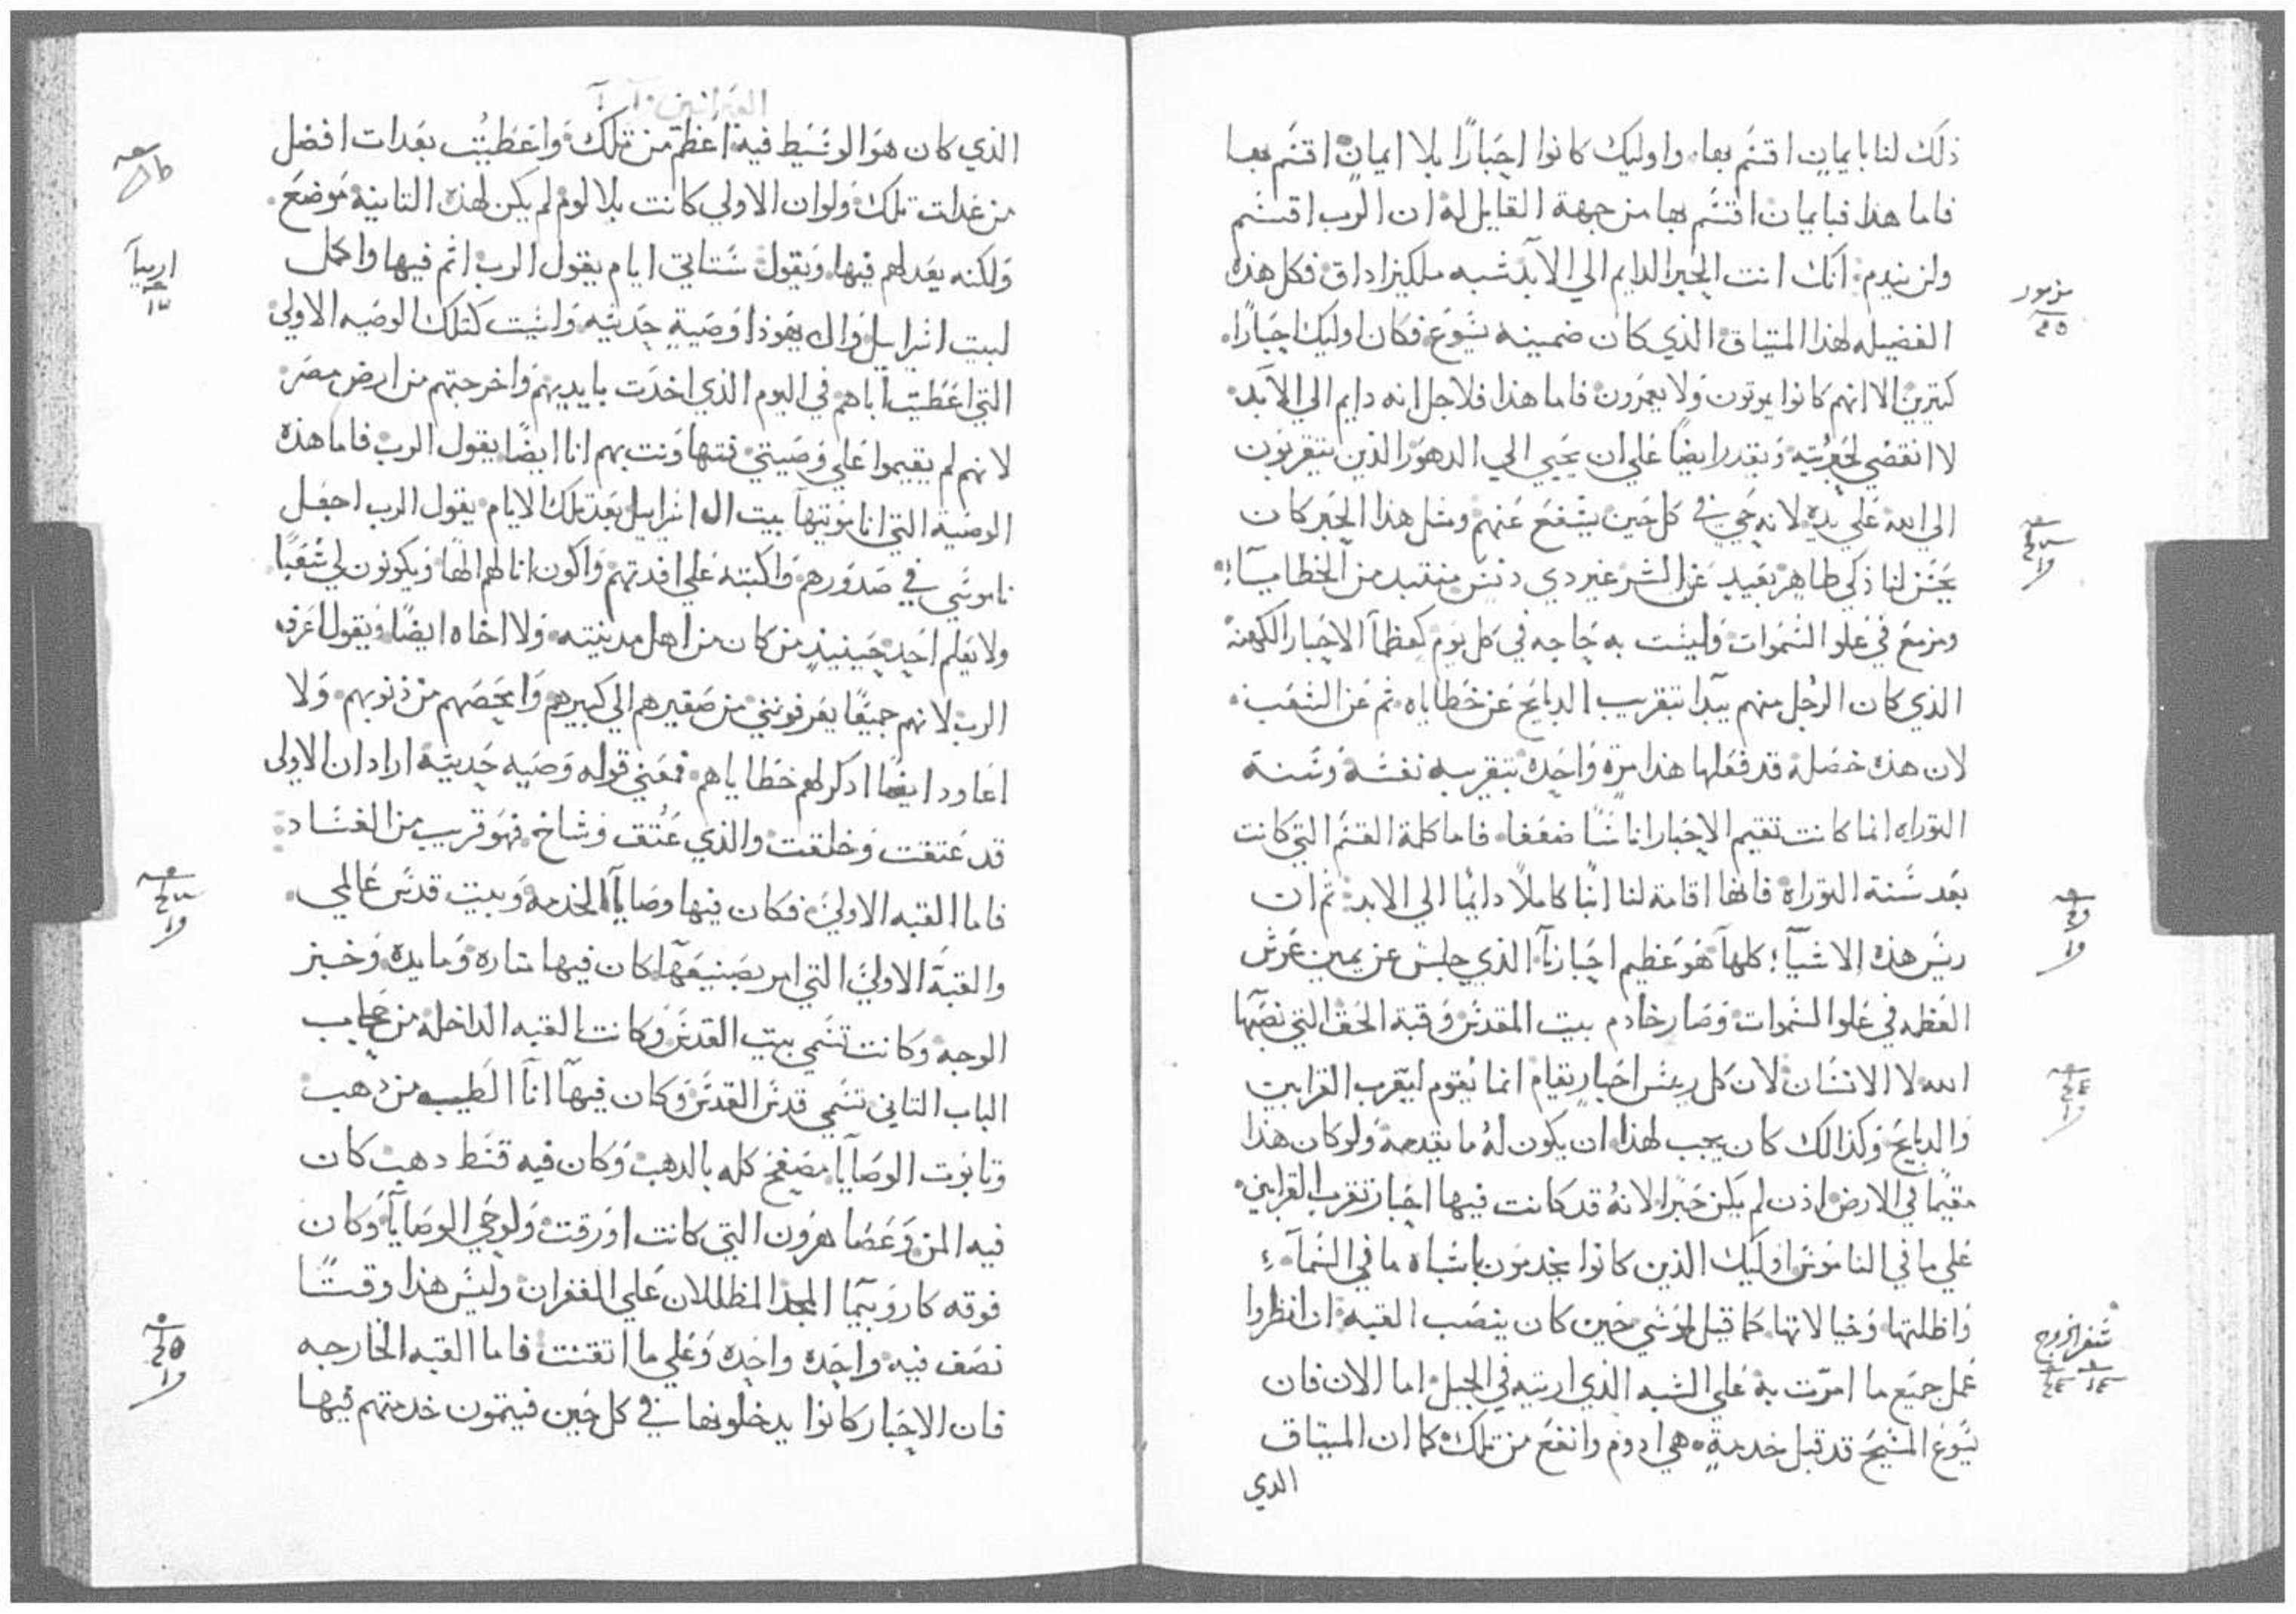 ذلك لنا بايمان اقتسم بها. واوليك كانوا احبارًا بلا ايمان اقتسم بها
فاما هذا فبايمان اقتسم بها من جهة القايل له ان الرب اقتسم
ولن يندم. انك انت الحبر الدايم الي الابد شبه ملكيزاداق فكل هذه
مزمور
الفضيله لهذا الميتاق الذي كان ضمينه يسوع. فكان اوليك احبارًا.
كتيرين الا انهم كانوا يموتون ولا يعمرون فاما هذا فلاجل انه دايم الي الابد.
لا انقضي لحبريته ويقدر ايضا علي ان يحيي الي الدهور الذين يتقربون
الي الله علي يده لانه حي في كل حين يشفع عنهم ومثل هذا الحبر كان
يحسن لنا زكي طاهر بعيد عن الشر غير دي دنس مبتعد من الخطايا
ومرتفع في علو السموات وليست به حاجه في كل يوم كعظما الاحبار الكهنة
الذي كان الرجل منهم يبدا بتقريب الدبايح عن خطاياه. ثم عن الشعب.
لان هذه خصلة قد فعلها هذا مرة واحدة بتقريبه نفسه وسنة
التوراه انما كانت تقيم الاحبار اناسًا ضعفا. فاما كلمة القسم التي كانت
بعد سنة التوراة فانها اقامة لنا ابنًا كاملاً دايمًا الي الابد: ثم ان
ريس هذه الاشيآء كلها هو عظيم احبارنا. الذي جلس عن يمين عرش
العظمه في علو السموات وصار خادم بيت المقدس وقبة الحق التي نصبها
الله لا الانسان لان كل ريس احبار يقام انما يقوم ليقرب القرابين
والدبايح وكذالك كان يجب لهذا ان يكون له ما يقدمه ولو كان هذا
مقيمًا في الارض اذن لم يكن حبرًا لانه قد كانت فيها احبار تقرب القرابين.
علي ما في الناموس اوليك الذين كانوا يخدمون باشباه ما في السمآء
واظلتها وخيالاتها. كما قيل لموسي حين كان ينصب القبة: ان انظروا
سفر الخروج
عمل جميع ما امرت به علي الشبه الذي اريته في الجبل: اما الان فان
يسوع المسيح قد قبل خدمة هي ادوم وانفع من تلك كما ان الميتاق
الدي
العبرانيين
الذي كان هو الوسيط فيه اعظم من تلك واعطيت بعدات افضل
من عدات تلك ولو ان الاولي كانت بلا لوم لم يكن لهذه التانية موضع.
ولكنه يعدلهم فيها. ويقول ستاتي ايام يقول الرب اتم فيها واكمل
ارميآ
لبيت اسرايل وال يهوذا وصية حديثه وليست كتلك الوصيه الاولي
التي اعطيت اباهم في اليوم الذي اخدت بايديهم واخرجتهم من ارض مصر
لانهم لم يقيموا علي وصيتي فتهاونت بهم انا ايضًا يقول الرب فاما هذه
الوصية التي انا موتيها بيت ال اسرايل بعد تلك الايام يقول الرب اجعل
ناموسي في صدورهم واكتبه علي افدتهم واكون انا لهم الهًا ويكونون لي شعبًا
ولا يعلم احد حينيذ من كان من اهل مدينته ولا اخاه ايضًا ويقول اعرف
الرب لانهم جميعًا يعرفونني من صغيرهم الي كبيرهم وامحصهم من ذنوبهم ولا
اعاود ايضًا اذكر لهم خطاياهم. فمعني قوله وصيه حديثة اراد ان الاولي
قد عتقت وخلقت والذي عتق وشاخ فهو قريب من الفساد
فاما القبه الاولي فكان فيها وصايا الخدمة وبيت قدس عالمي.
والقبة الاولي التي امر بصنيعها كان فيها مناره ومايده وخبز
الوجه وكانت تسمي بيت القدس وكانت القبه الداخلة من حجاب
الباب التاني تسمي قدس القدس وكان فيها انآ الطيب من دهب
وتابوت الوصايا مصفح كله بالدهب وكان فيه قسط دهب كان
فيه المن وعصا هرون التي كانت اورقت ولوحي الوصايا وكان
فوقه كاروبيما المجد المظللان علي الغفران وليس هذا وقتًا
نصف فيه واحده واحده وعلي ما اتقنت فاما القبه الخارجه
فان الاحبار كانوا يدخلونها في كل حين فيتمون خدمتهم فيها